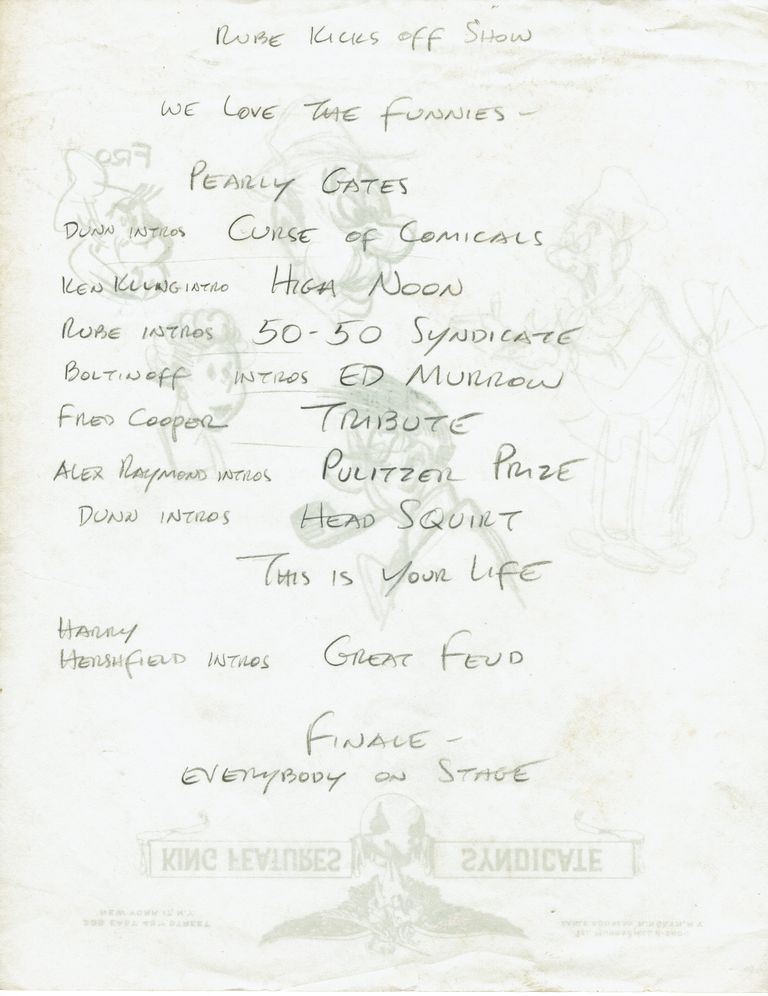 RUBE KICKS OFF SHOW
WE LOVE THE FUNNIES -
PEARLY GATES
DUNN INTROS CURSE OF COMICALS
KEN KLING INTRO HIGH NOON
RUBE INTROS 50-50 SYNDICATE
BOLTINOFF INTROS ED MURROW
FRED COOPER TRIBUTE
ALEX RAYMOND INTROS PULITZER PRIZE
DUNN INTROS HEAD SQUIRT
THIS IS YOUR LIFE
HARRY
HERSHFIELD INTROS GREAT FEUD
FINALE -
EVERYBODY ON STAGE
KING FEATURES SYNDICATE
NEW YORK 17, N.Y.
235 EAST 45TH STREET